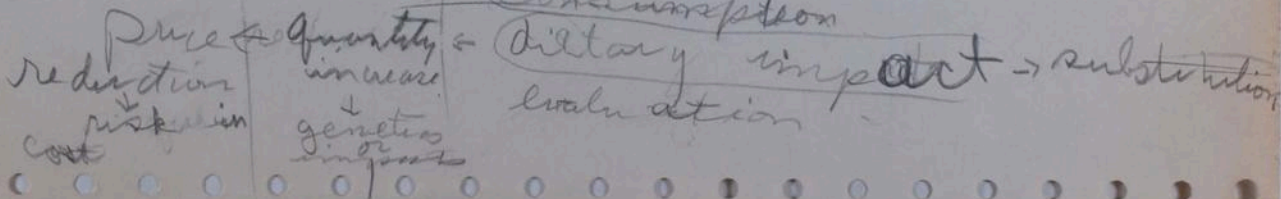 consumption
price ← quantity ← dietary impact → substitution
reduction increase evaluation
↓ risk in ↓ genetics
cost or